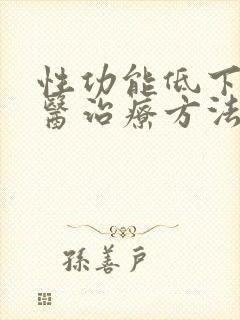 性功能低下
醫治療方法
孫善戶